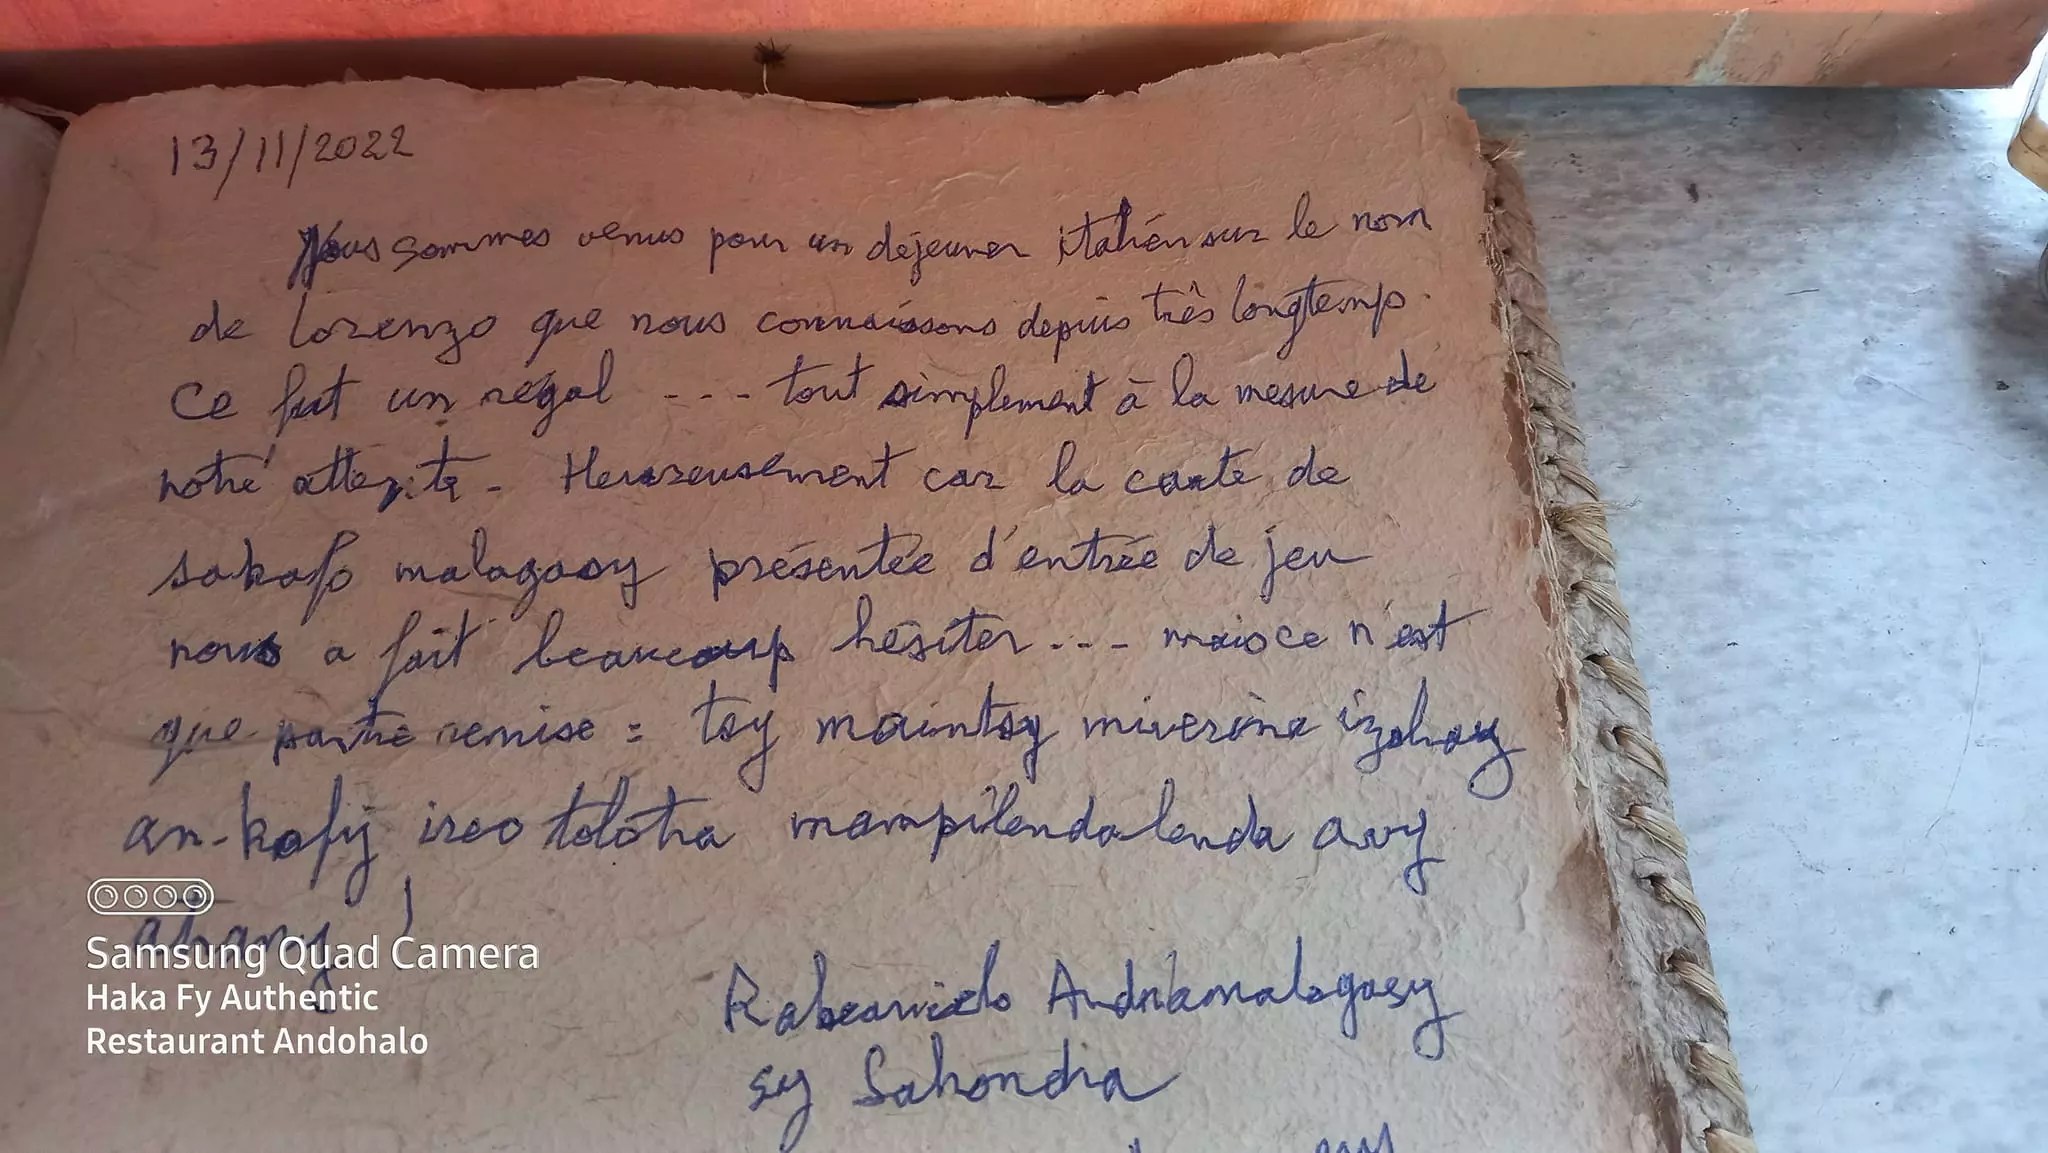 13/11/2022
Nous sommes venus pour un déjeuner italien sur le nom
de Lorenzo que nous connaissons depuis très longtemps.
Ce fut un régal ---- tout simplement à la mesure de
notre attente - Heureusement car la carte de
sakafo malagasy présentée d'entrée de jeu
nous a fait beaucoup hésiter --- mais ce n'est
que partie remise : tsy maintsy miverina izahay
an-kafy ireo tolotra mampilendalenda avy
ahany !
Andriamalagasy
sy Sahondra
Samsung Quad Camera
Haka Fy Authentic
Restaurant Andohalo